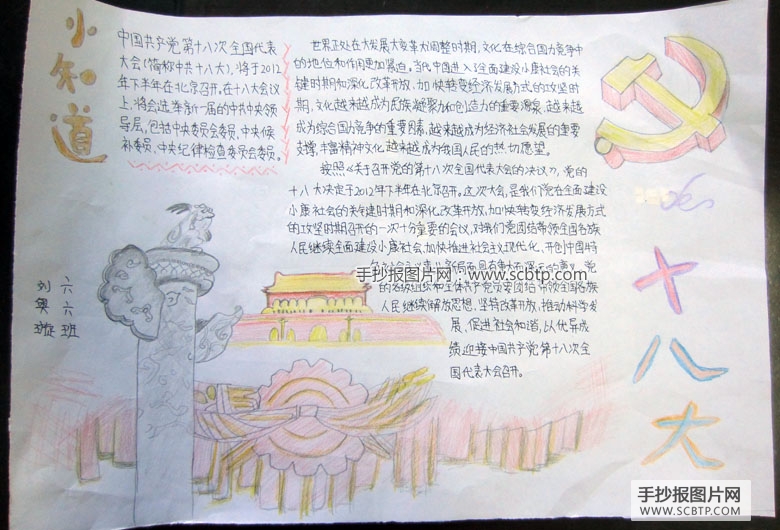 小知道
中国共产党第十八次全国代表
大会(简称中共十八大),将于2012
年下半年在北京召开,在十八大会议
上,将会选举新一届的中共中央领
导层,包括中央委员会委员,中央候
补委员,中央纪律检查委员会委员。
世界正处在大发展大变革大调整时期,文化在综合国力竞争中
的地位和作用更加紧迫。当代中国进入了全面建设小康社会的关
键时期和深化改革开放,加快转变经济发展方式的攻坚时
期,文化越来越成为民族凝聚力和创造力的重要源泉,越来越
成为综合国力竞争的重要因素,越来越成为经济社会发展的重要
支撑,丰富精神文化越来越成为我国人民的热切愿望。
按照《关于召开党的第十八次全国代表大会的决议》,党的
十八大决定于2012年下半年在北京召开。这次大会,是我们党在全面建设
小康社会的关键时期和深化改革开放,加快转变经济发展方式
的攻坚时期召开的一次十分重要的会议,对我们党团结带领全国各族
人民继续全面建设小康社会,加快推进社会主义现代化,开创中国特
党
的各级组织和全体共产党员要团结带领全国各族
人民继续解放思想,坚持改革开放,推动科学发
展,促进社会和谐,以优异成
绩迎接中国共产党第十八次全
国代表大会召开。
手抄报图片网:www.scbtp.com
六六班
刘奥璇
十八大
手抄报图片网
WWW.SCBTP.COM